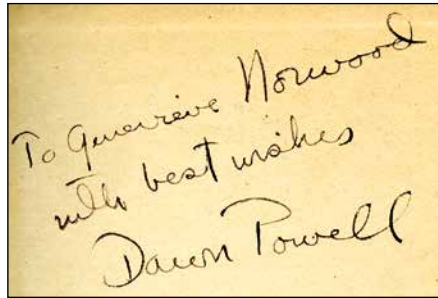 To Genevieve Norwood
with best wishes
Dawn Powell